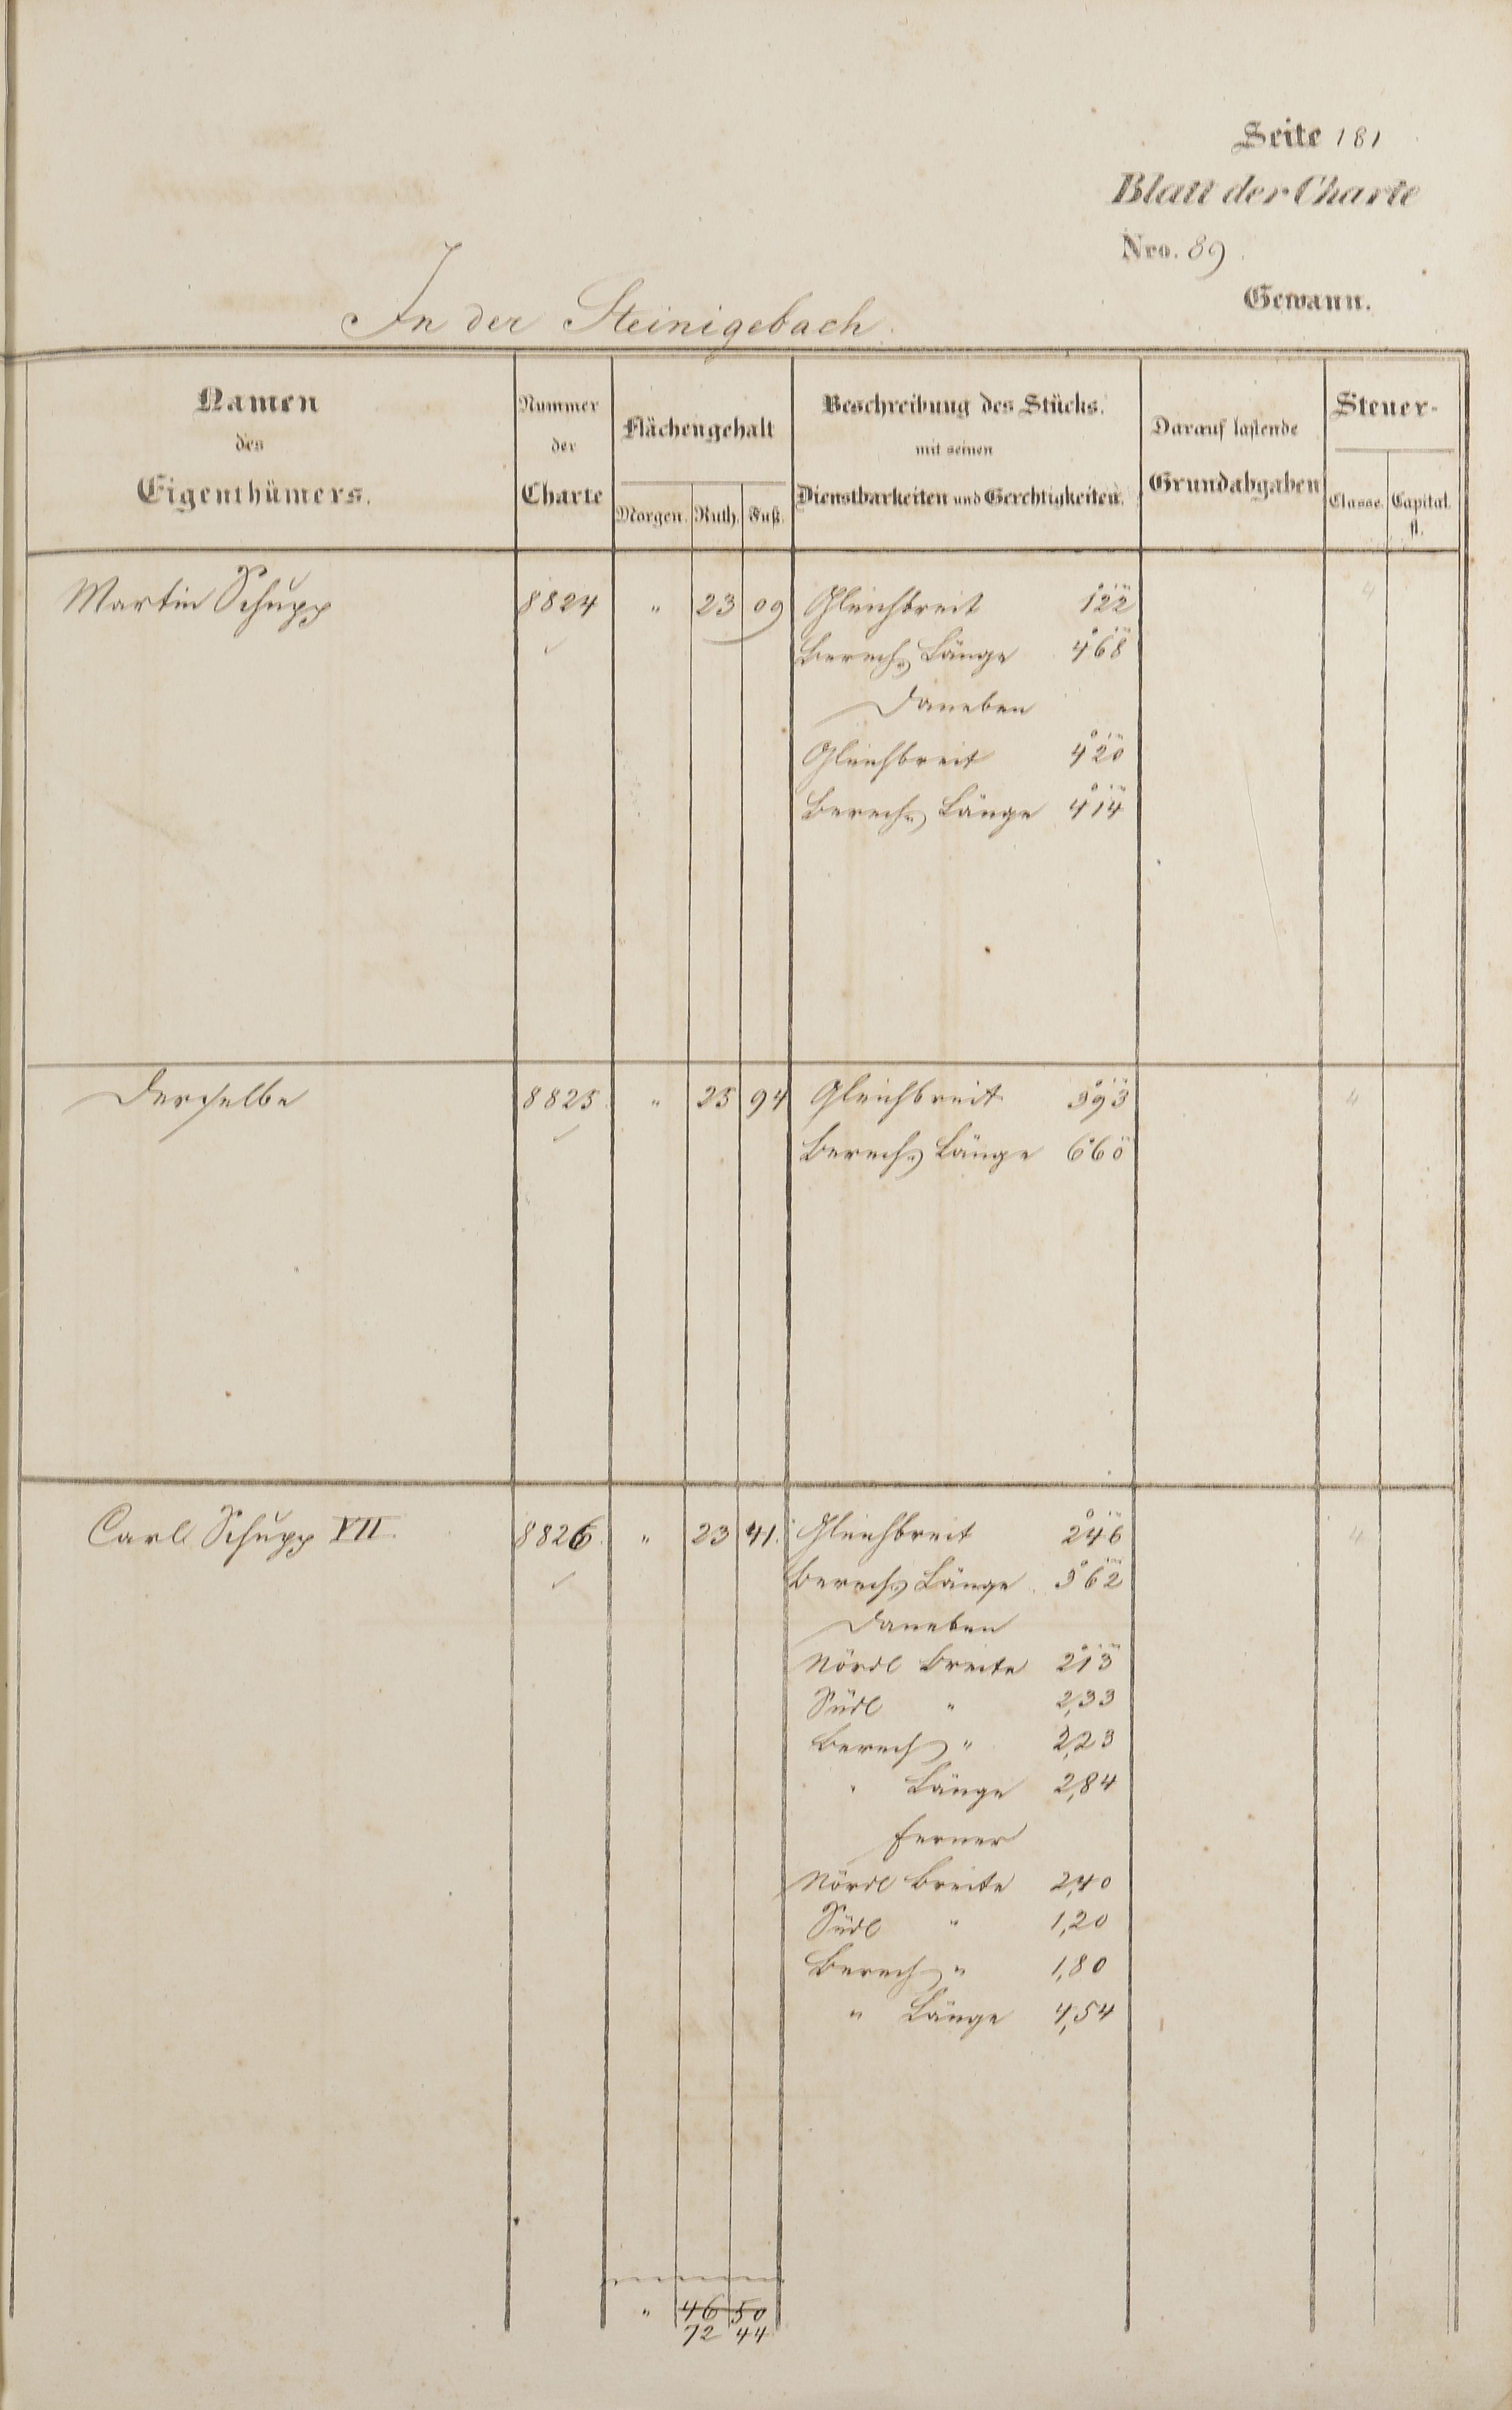 Seite 181
Blatt der Charte
Nro. 89.
Gewann.
In der Steinigebach.
Namen des Eigenthümers.
Nummer der Charte
Flächengehalt
Morgen. Ruth. Fuß.
Beschreibung des Stücks.
mit seinen
Dienstbarkeiten und Gerechtigkeiten.
Darauf lastende
Grundabgaben
Steuer-
Classe. Capital.
fl.
Martin Schupp 8824 " 23 09 Gleichbreit 122 4
Berech. Länge 468
Daneben
Gleichbreit 420
Berech. Länge 414
Derselbe 8825. " 25 94 Gleichbreit 393 4
Berech. Länge 660
Carl Schupp VII. 8826. " 23 41. Gleichbreit 246 4
Berech. Länge 362
Daneben
Nördl Breite 213
Südl " 2,33
Berech " 2,23
" Länge 2,84
Ferner
Nördl Breite 2,40
Südl " 1,20
Berech " 1,80
" Länge 4,54
" 46 50
72 44